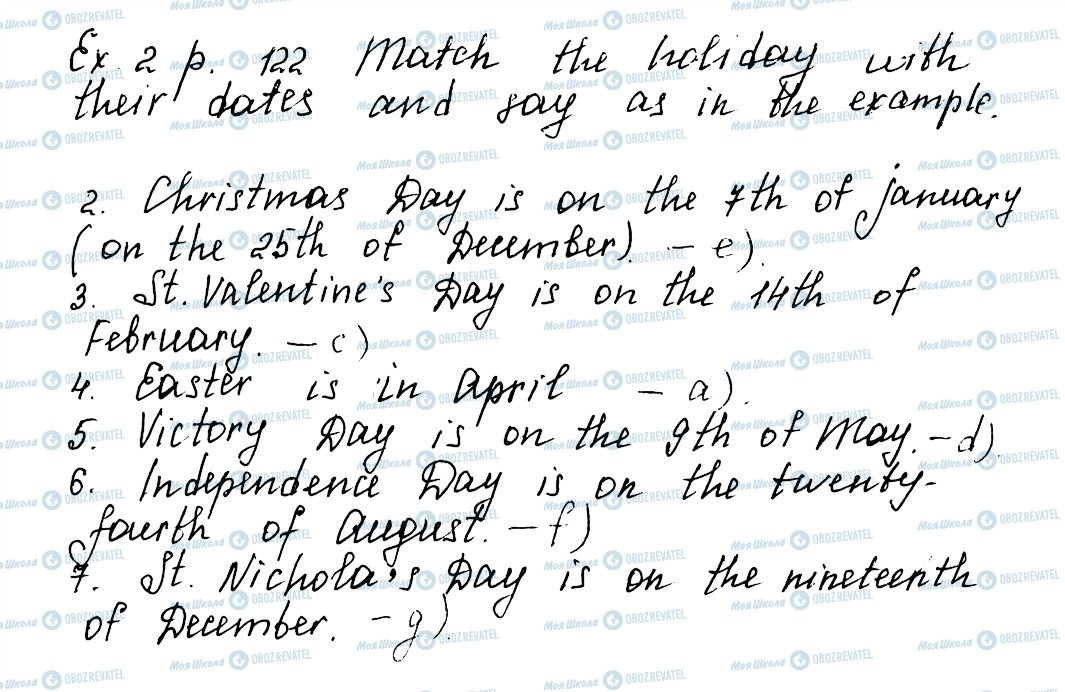 Ex 2 p. 122 Match the holiday with
their dates and say as in the example.
2. Christmas Day is on the 7th of january
(on the 25th of December). – e).
3. St. Valentine's Day is on the 14th of
February. – c)
4. Easter is in April – a).
5. Victory Day is on the 9th of May. – d).
6. Independence Day is on the twenty-
fourth of August. – f)
7. St. Nichola's Day is on the nineteenth
of December. – g).